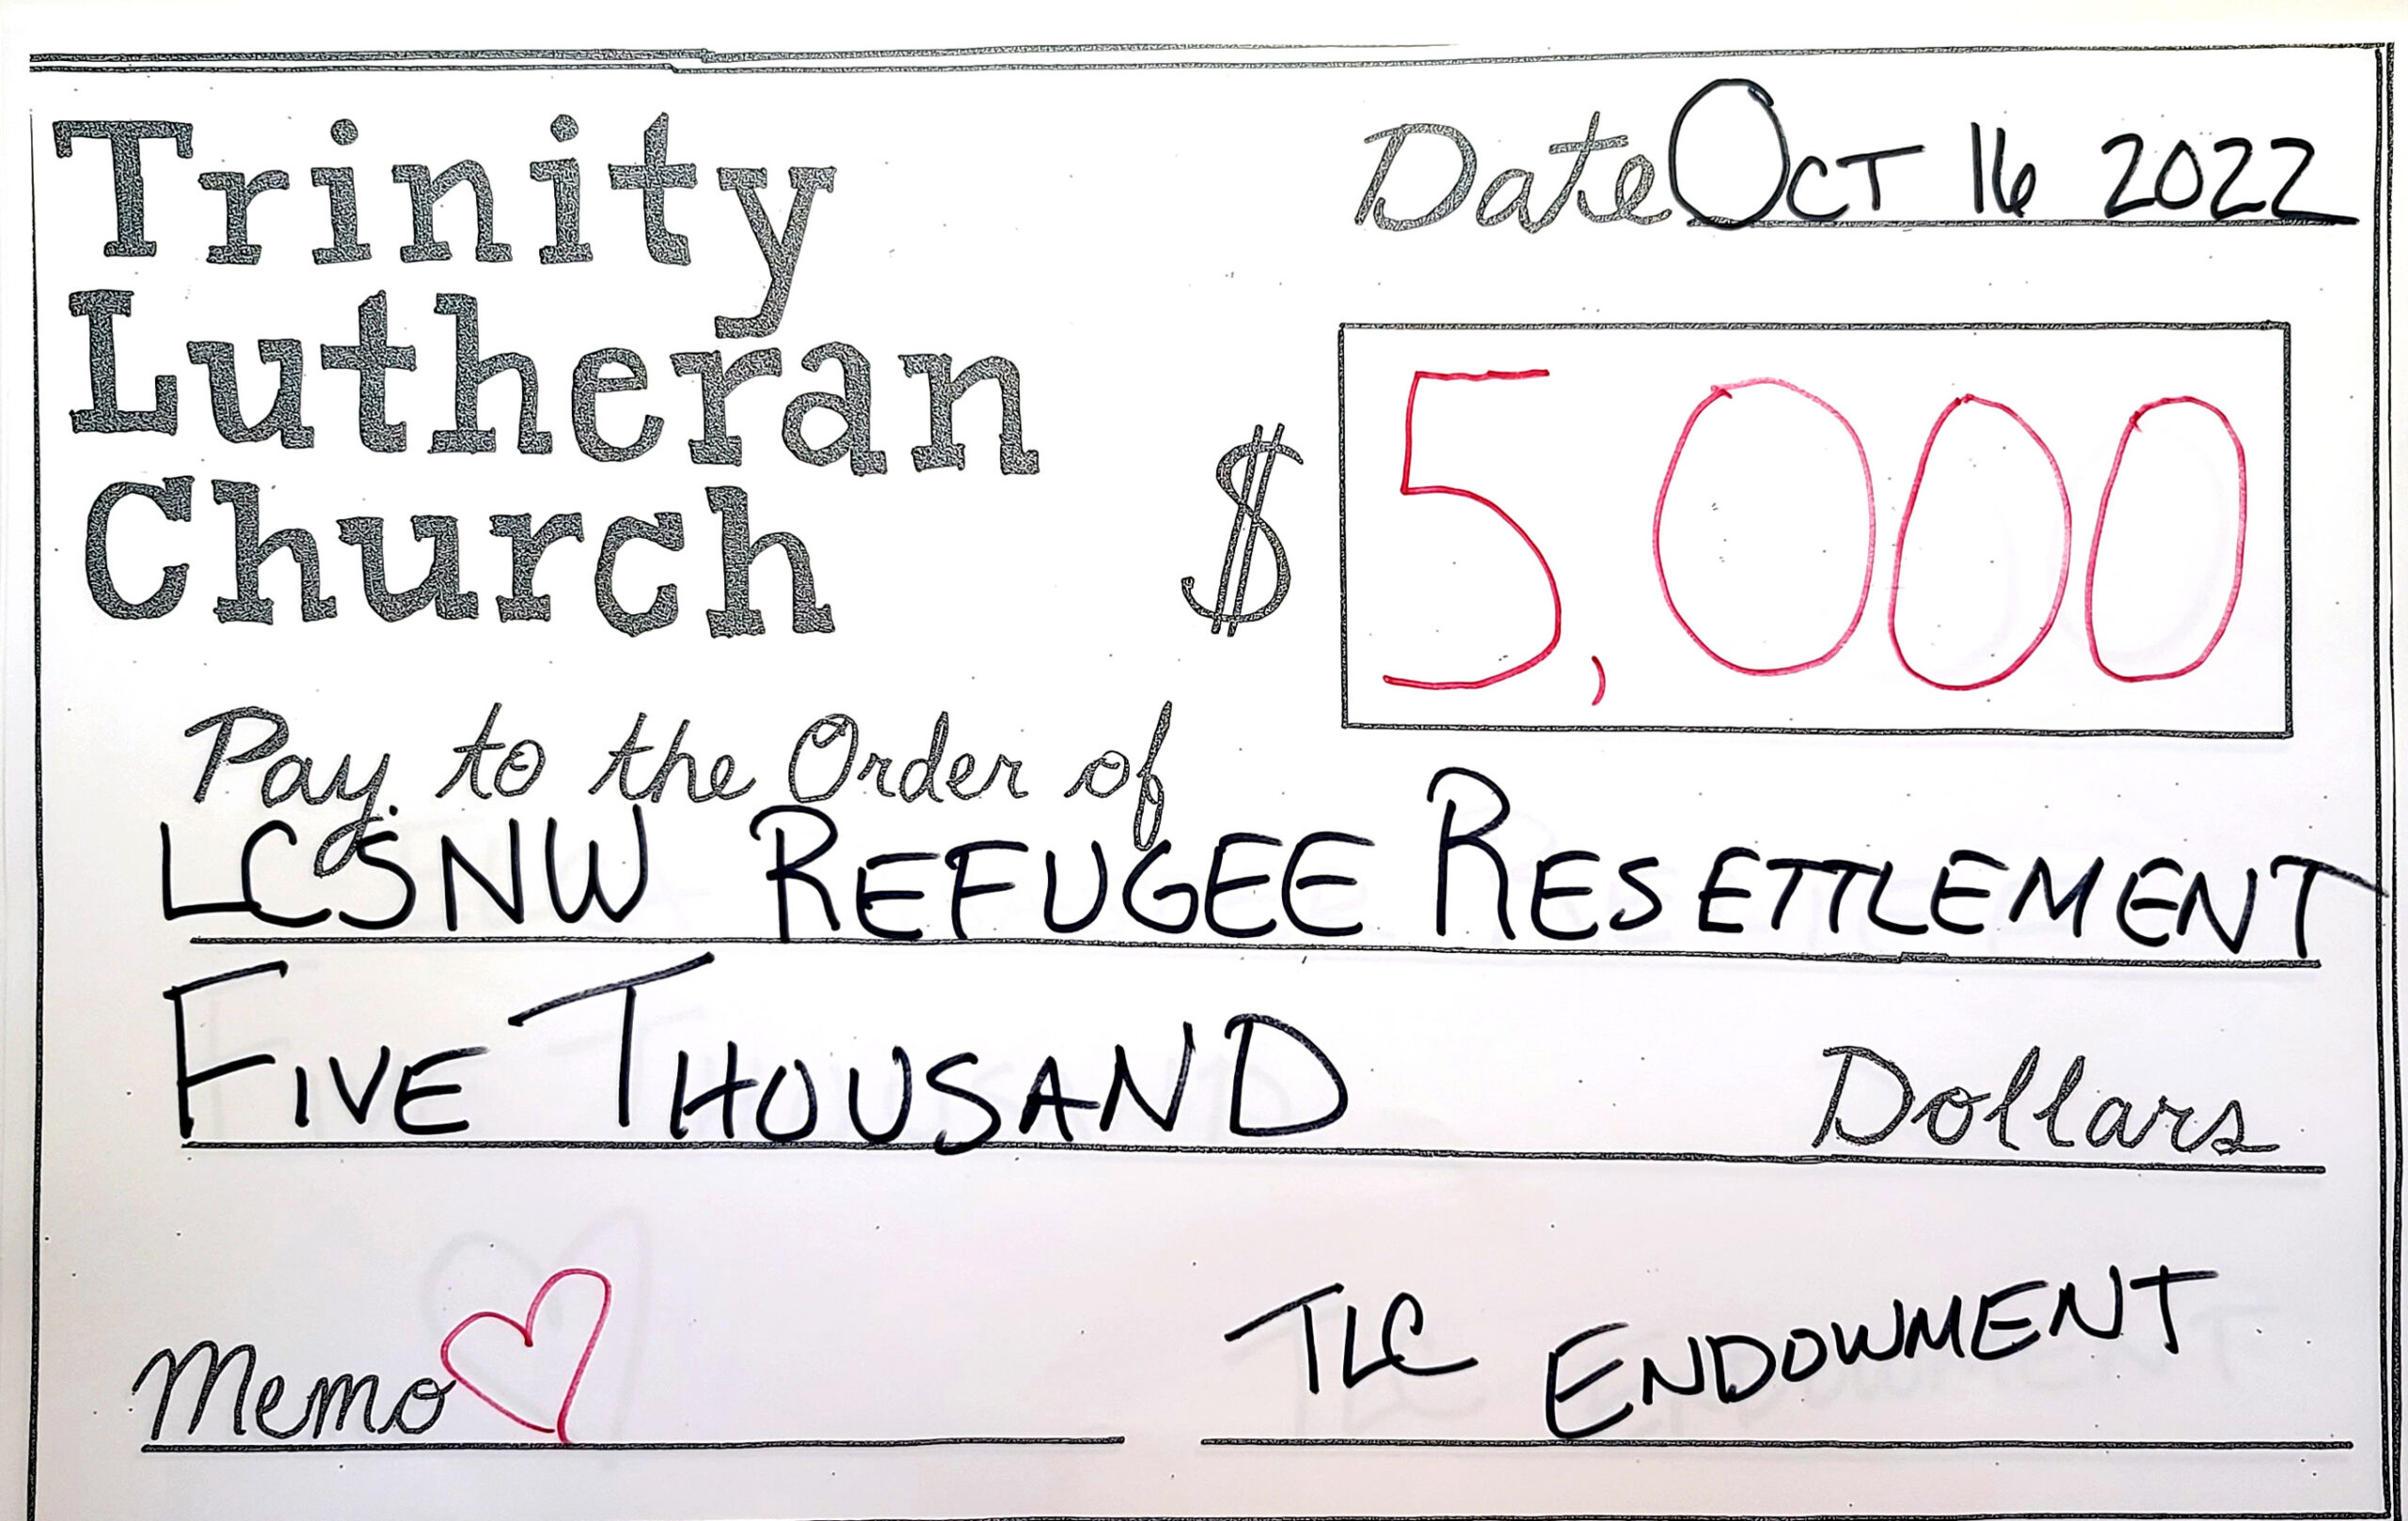 Trinity
Lutheran
Church
Date Oct 16 2022
$ 5,000
Pay to the Order of
LCSNW REFUGEE RESETTLEMENT
FIVE THOUSAND Dollars
Memo ♡
TLC ENDOWMENT